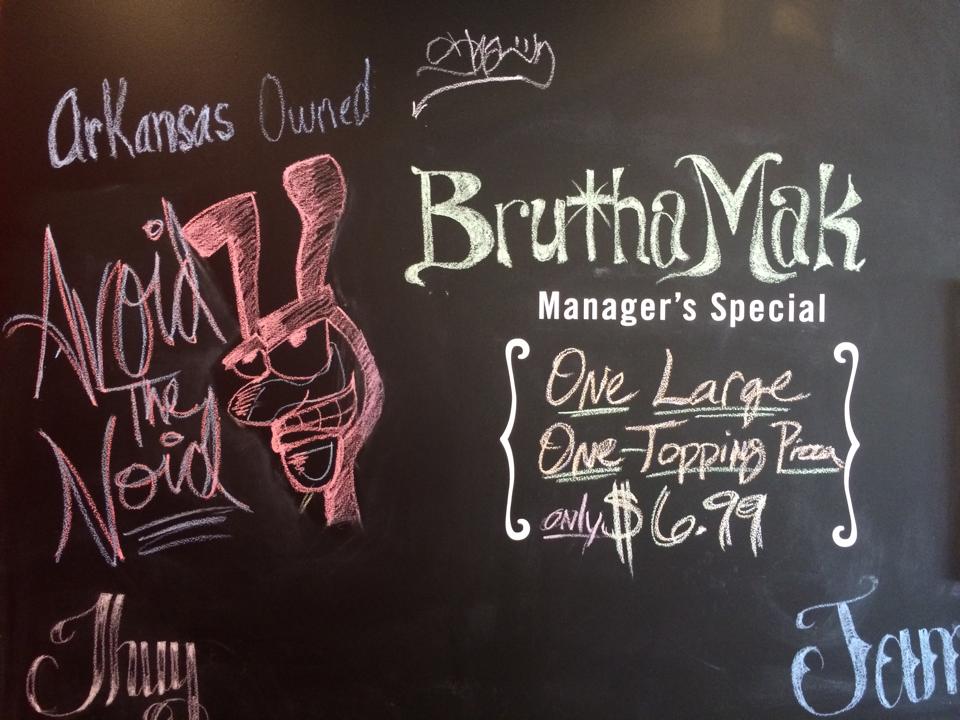 Arkansas Owned
Avoid
The
Noid
BruthaMak
Manager's Special
One Large
One-Topping Pizza
only $6.99
Thuy